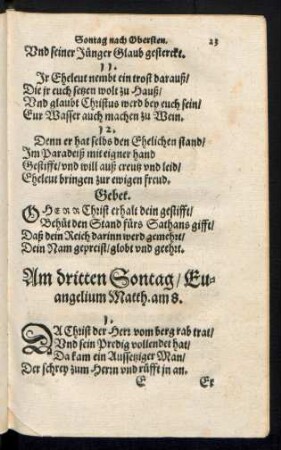 Sontag nach Obersten. 23
Vnd seiner Jünger Glaub gesterckt.
11.
Ir Eheleut nembt ein trost darauß/
Die jr euch setzen wolt zu Hauß/
Vnd glaubt Christus werd bey euch sein/
Eur Wasser auch machen zu Wein.
12.
Denn er hat selbs den Ehelichen stand/
Im Paradeiß mit eigner hand
Gestifft/ vnd will auß creutz vnd leid/
Eheleut bringen zur ewigen freud.
Gebet.
O HERR Christ erhalt dein gestifft/
Behüt den Stand fürs Sathans gifft/
Daß dein Reich darinn werd gemehrt/
Dein Nam gepreist/ globt vnd geehrt.
Am dritten Sontag/ Eu-
angelium Matth. am 8.
1.
DA Christ der Herr vom berg rab trat/
Vnd sein Predig vollendet hat/
Da kam ein Aussetziger Man/
Der schrey zum Herrn vnd rüfft jn an.
E Er